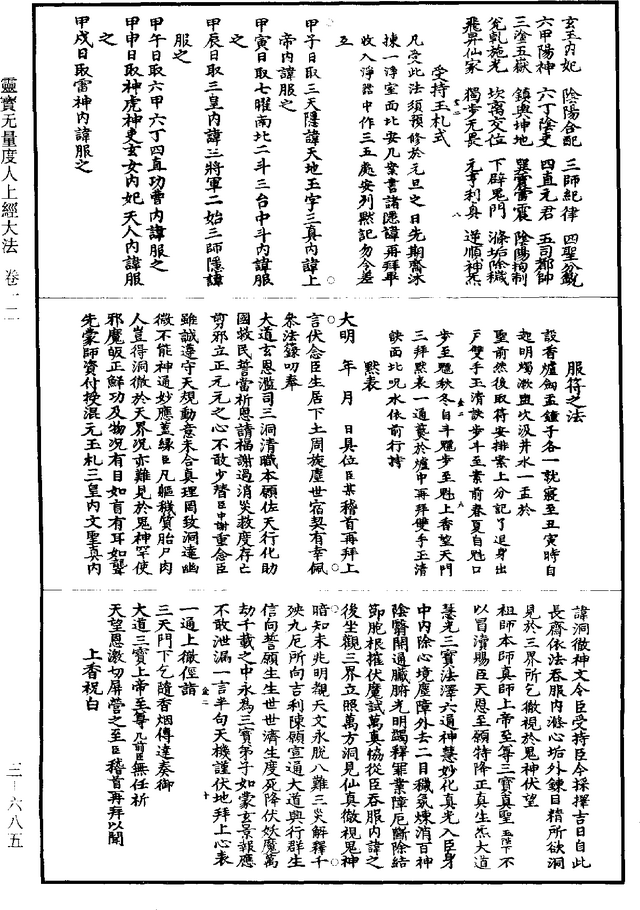 玄玉內妃　陰陽合配　三師紀律　四聖分觀
六甲陽神　六丁陰吏　四直元君　五司都帥
三塗五嶽　鎮與坤地　巽宮雷震　陰陽拘制
兊乾施光　坎离交位　下辟鬼門　滌垢除穢
飛昇仙家　獨步无畏　元亨利貞　逆順神炁
受持玉札式
凡受此法須預修於元旦之日先期齋沐
揀一淨室面北安几案書諸隱諱再拜畢
收入淨器中作三五處安列默記勿令差
互
甲子日取三天隱諱天地玉字三真內諱上
帝內諱服之
甲寅日取七曜南北二斗三台中斗內諱服
之
甲辰日取三皇內諱三將軍二始三師隱諱
服之
甲午日取六甲六丁四直功曹內諱服之
甲申日取神虎神吏玄女內妃天人內諱服
之
甲戌日取雷神內諱服之
靈寶无量度人上經大法　卷一二
服符之法
設香爐劔盂鐘子各一就寢至丑寅時自
起明燭漱盥次汲井水一盂於
聖前然後取符安排案上分記了退身出
戶雙手玉清訣步斗至案前春夏自魁口
步至魒秋冬自斗魒步至魁上香望天門
三拜默表一通𤑔於爐中再拜雙手玉清
訣面北呪水依前行持
默表
大明　年　月　日具位臣某稽首再拜上
言伏念臣生居下土周旋塵世宿契有幸佩
叅法籙叨奉
大道玄恩濫司三洞清職本願佐天行化助
國救民誓當祈恩請福謝過消災救度存亡
剪邪立正元元之心不敢少替臣中謝重念臣
雖誠遵守天規動意未合真理罔致洞達幽
微不能神通妙應蓋緣臣凡軀穢質胎尸肉
人豈得洞徹於天界況亦難見於鬼神罕使
邪魔皈正鮮功及物況有目如盲有耳如聾
先蒙師資付授混元玉札三皇內文聖真內
諱洞徹神文今臣受持臣今採擇吉日自此
長齋依法吞服內滌心垢外鍊目精所欲洞
見於三界所乞徹視於鬼神伏望
祖師本師真師上帝至尊三寶真聖玉陛下不
以冒瀆賜臣天恩至願特降正真生炁大道
慧光三寶法澤六通神慧妙化真光入臣身
中內除心境塵障外去二目穢氛煉消百神
陰翳開通臟腑光明蠲釋罪業障厄斷除結
節胞根摧伏魔試萬真協從臣吞服內諱之
後坐觀三界立照萬方洞見仙真徹視鬼神
暗知未兆明觀天文永脫八難三災解釋千
殃九厄所向吉利陳願宣通大道興行群生
信向誓願生生世世濟生度死降伏妖魔萬
劫千載之中永為三寶弟子如蒙玄景報應
不敢泄漏一言半句天機謹伏地拜上心表
一通上徹徑詣
三天門下乞隨香烟傳達奏御
大道三寶上帝至尊几前臣無任祈
天望恩激切屏營之至臣稽首再拜以聞
上香祝白
三-六八五